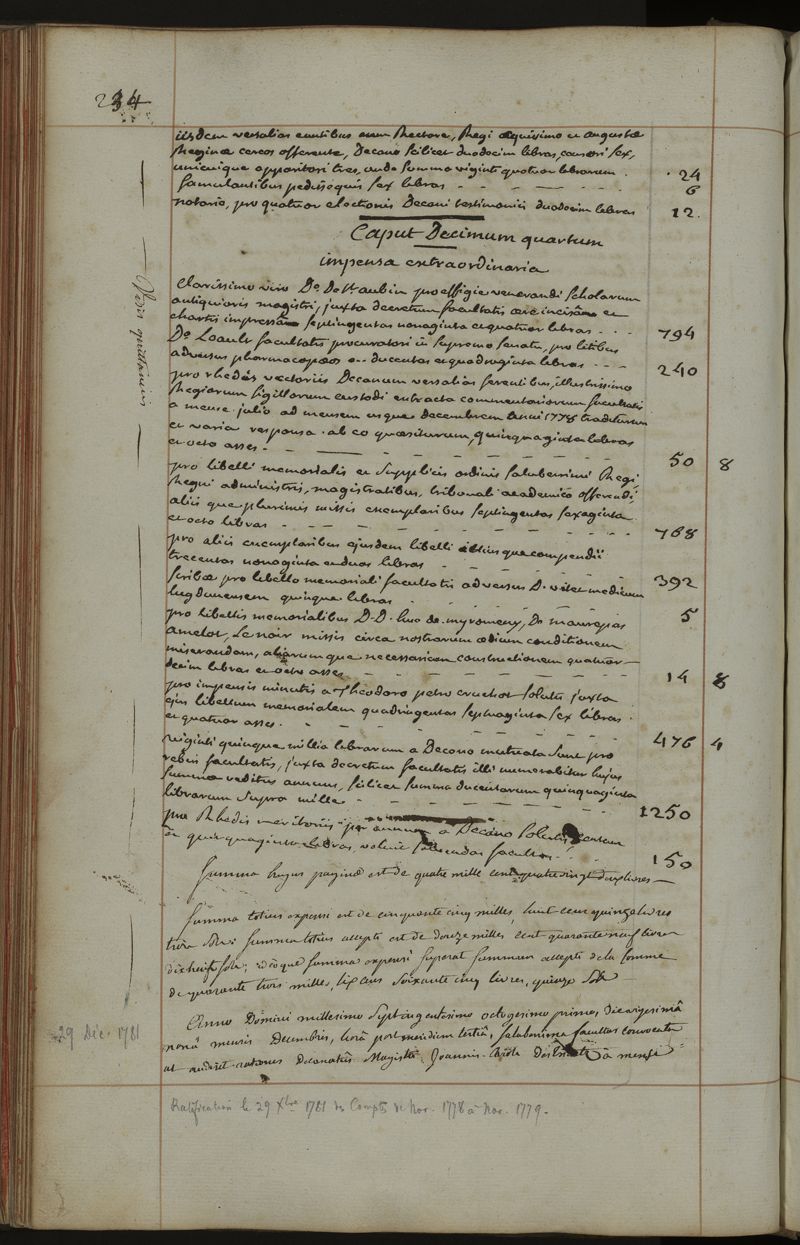 234
iisdem versalias euntibus cum Rectore, Regi aequissimo et augustae
Reginae cereos offerente, Decano scilicet duodecim libras, censori sex,
unicuique apparitori tres, unde summa viginti quatuor librarum . 24
famulantibus pedissequis sex libras - - - 6
notario, pro quatuor electionis Decani testimoniis duodecim libras 12.
Caput Decimum quartum
impensa extraordinaria
Clarissimo viro Do. De St. aubin pro effigie venerandi Scholarum
antiquioris magistri, juxta decretum facultatis aere incisâ et
chartis impressâ septingentas nonaginta et quatuor libras - - - 794
Do. Loault facultatis procuratori in supremo senatu, pro litibus
adversus pharmacopaeos ... ducentas et quadraginta libras - - - 240
pro rhedis vectoriis Decanum versalias ferentibus, illustrissimo
Regiorum sigillorum custodi extracta commentariorum facultatis
a mense julio ad mensem usque decembrem anni 1778 traditurum
et varia responsa ab eo quaesiturum, quinquaginta libras
et octo asses - - - 50 8
pro libelli memorialis et supplicis ordinis saluberrimi Regi,
Regni administris, magistratibus, tribunali academico offerendi
aliis que plurimis missis exemplaribus septingentas sexaginta
et octo libras - - - 768
pro aliis exemplaribus ejusdem libelli illiusque compendii
trecentas nonaginta et duas libras - - - 392
scribae pro libello memoriali facultatis adversus D. vitet medicum
lugdunensem quinque libras - - - 5
pro libellis memorialibus D.D. hue de myromeny, De maurepas
amelot, Le noir missis circa nostrarum aedium conditionem
miserandam, aliarumque necessariam constructionem quatuor-
decim libras et octo asses - - - 14 8
pro impensis minutis a Theodoro petro cruchot solutis juxta
ejus libellum memorialem quadringentas septuaginta sex libras
et quatuor asses. - - - 476 4
viginti quinque millia librarum a Decano mutuata sunt pro
rebus facultatis, juxta decretum facultatis illi numerabitur hujus
summae reditus annuus, scilicet summa ducentarum quinquaginta
librarum supra mille - - - 1250
pro Rhedis meritoriis per annum a Decano solutis centum
et quinquaginta libras, voluit solvendas facultas. 150
Summa hujus paginae est de quatre mille cent quatre vingt deux livres —
Summa totius expensi est de cinquante cinq milles, huit cent quinze livres
trois sols: summa totius accepti est de douze milles cent quarante neuf livres
dix huit sols; ideoque summa expensi superat summam accepti de la somme
de quarante trois milles, six cens soixante cinq livres, quinze sols
Anno Domini millesimo septingentesimo octogesimo primo, die vigesimâ
nonâ mensis Decembris, horâ post meridiem tertiâ, saluberrima facultas convocata
ut audiret rationes Decanatûs Magistri Joannis- à mense
29 Dic. 1781
Ratification le 29 Xbre 1781 des Comptes de Nov. 1778 à Nov. 1779.